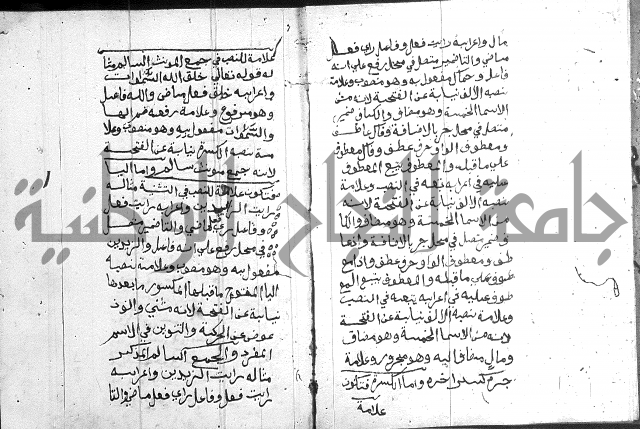 مال واعرابه رايت فعل وفاعل راي فعل
ماضي والتا ضمير متصل في محل رفع علي انه
فاعل و حمال مفعول به وهو منصوب وعلامة
نصبه الالف نيابة عن الفتحة لانه من
الاسما الخمسة وهو مضاف والكاف ضمير
متصل في محل جر بالاضافة وقال عاطف
ومعطوف الواو حرف عطف وقال معطوف
علي ما قبله والمعطوف يتبع المعطوف
عليه في اعرابه تبعه في النصب وعلامة
نصبه الالف نيابة عن الفتحة لانه
من الاسما الخمسة وهو مضاف والكا
ف ضمير متصل في محل جر بالاضافة وذا عا
طف ومعطوف الواو حرف عطف وذا مع
طوف علي ما قبله والمعطوف يتبع المع
طوف عليه في اعرابه تبعه في النصب
وعلامة نصبه الالف نيابة عن الفتحة
لانه من الاسما الخمسة وهو مضاف
ومال مضاف اليه وهو مجرور وعلامة
جره كسر اخره واما الكسرة فتكون
علامة
علامة للنصب في جمع المونث السالم مثا
له قوله تعالي خلق الله السموات
واعرابه خلق فعل ماضي والله فاعل
وهو مرفوع وعلامة رفعه ضم الها
والسموات مفعول به وهو منصوب وعلا
مة نصبه الكسرة نيابة عن الفتحة
لانه جمع مونث سالم واما اليا
فتكون علامة للنصب في التثنية مثاله
رايت الزيدين واعرابه رايت فعل
وفاعل راي فعل ماضي والتا ضمير متصل
في محل رفع علي انه فاعل والزيدين
مفعول به وهو منصوب وعلامة نصبه
اليا المفتوح ما قبلها المكسور ما بعدها
نيابة عن الفتحة لانه مثني والنون
عوض عن الحركة والتنوين في الاسم
المفرد والجمع السالم المذكر
مثاله رايت الزيدين واعرابه
رايت فعل وفاعل راي فعل ماضي والتا
جامعة النجاح الوطنية